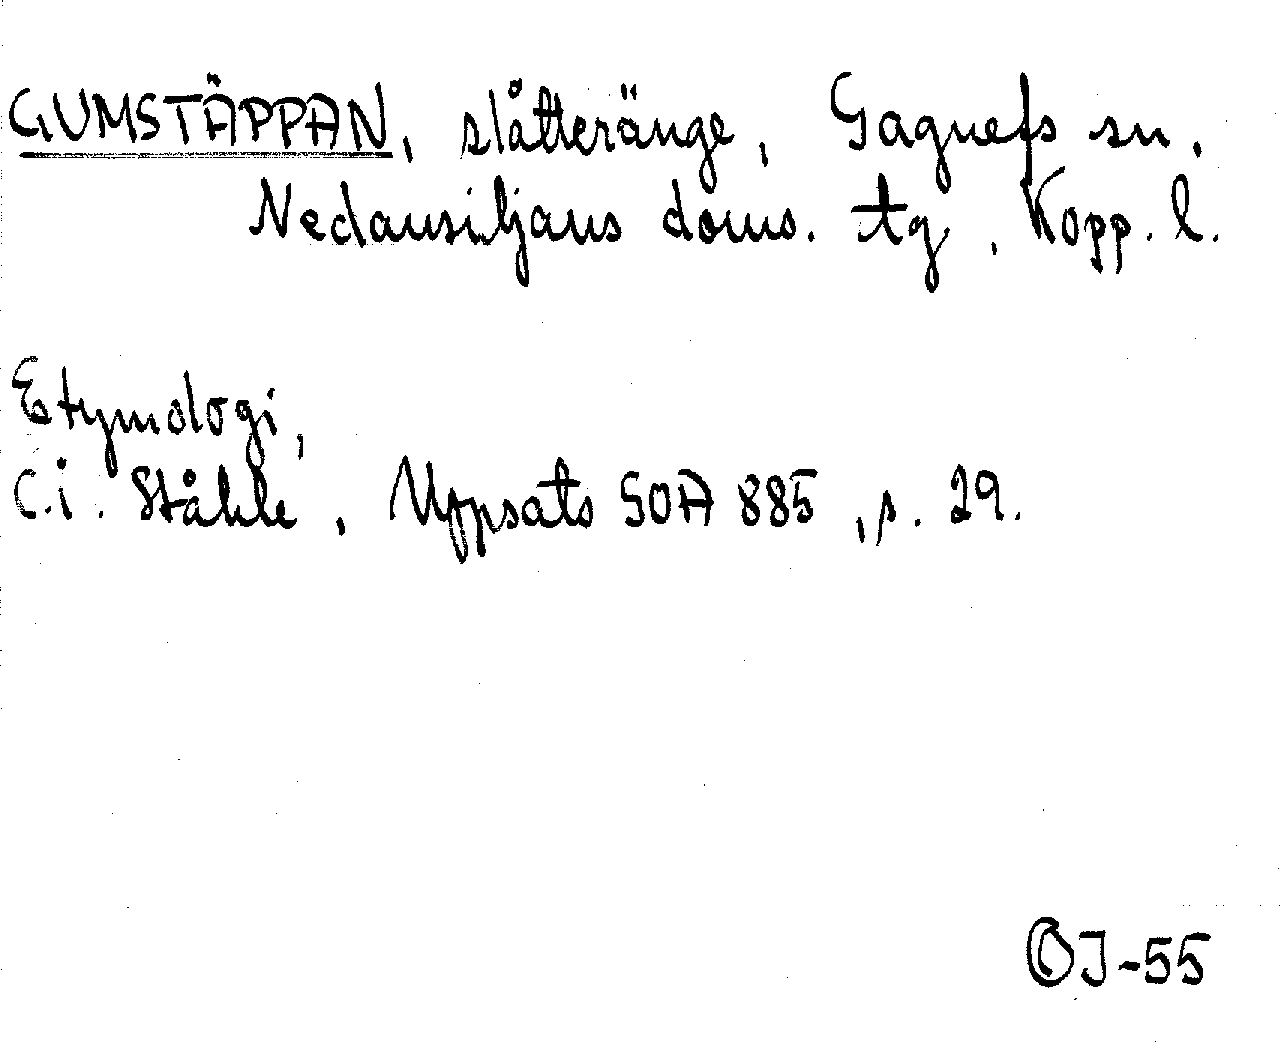 GUMSTÄPPAN, slåtteränge, Gagnefs sn,
Nedansiljans doms. tg, Kopp. l.
Etymologi,
C.i. Ståhle, Uppsats SOA 885, s. 29.
OJ-55